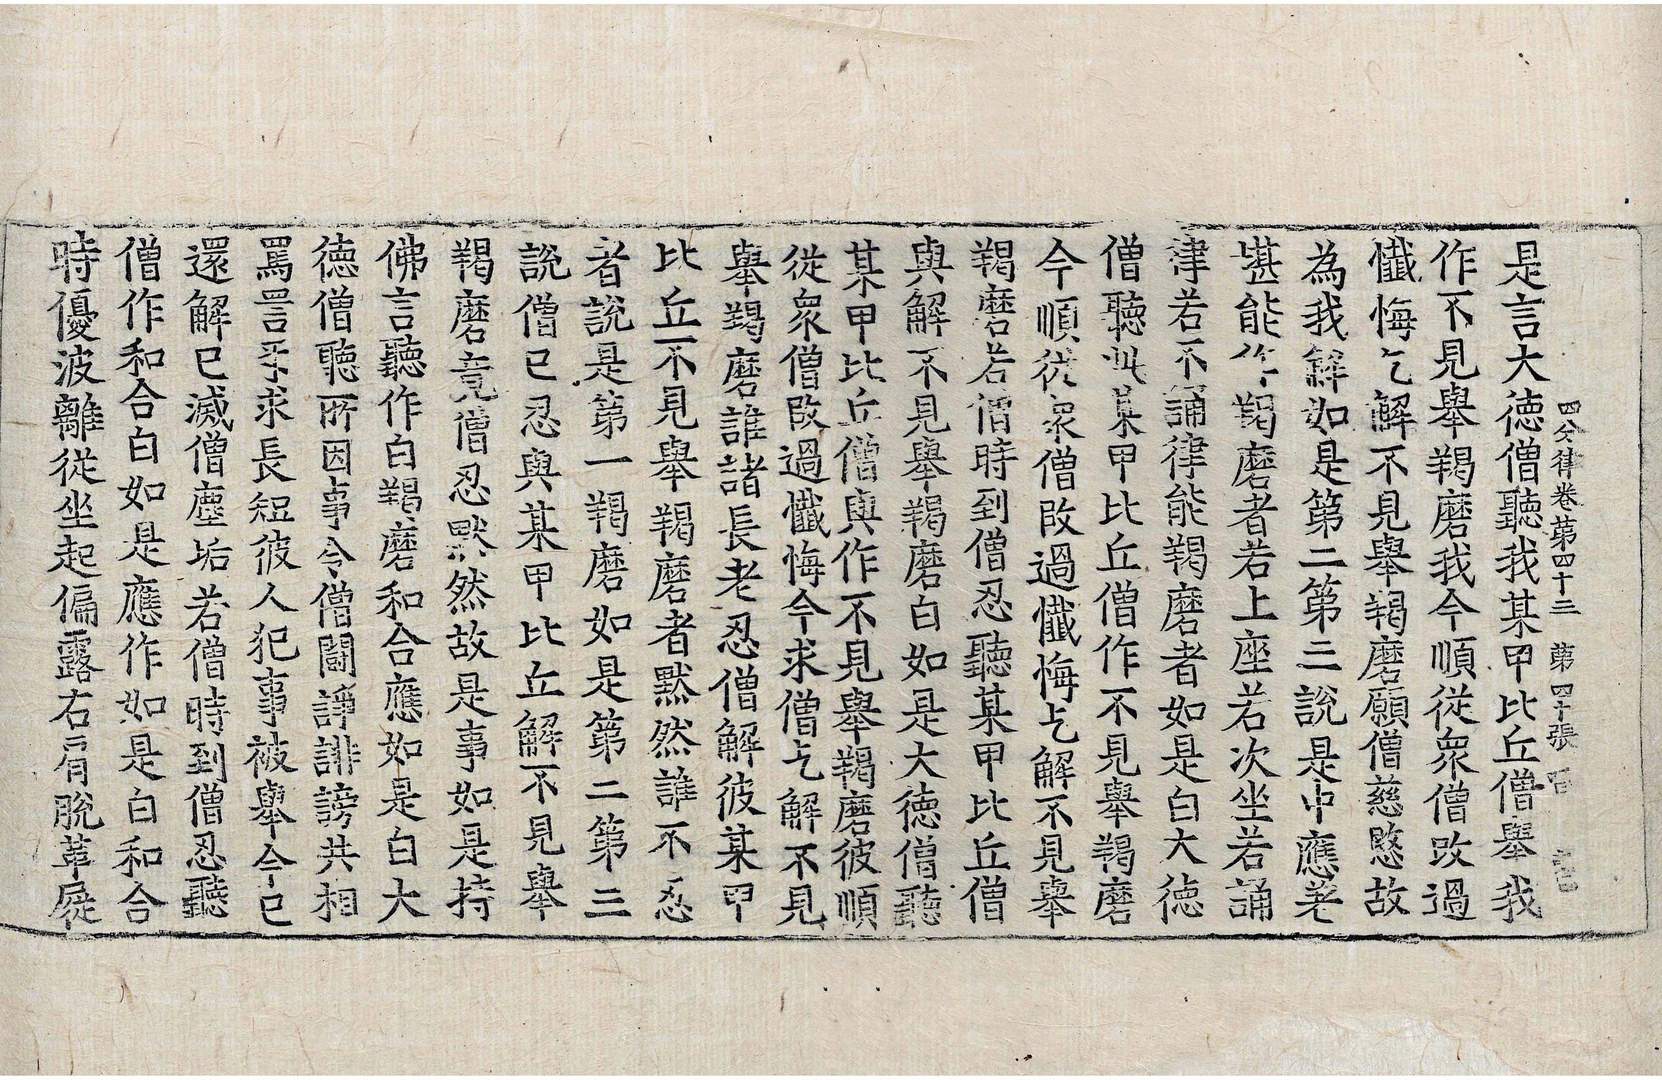 四分律卷第四十三 第四十張
是言大德僧聽我某甲比丘僧舉我
作不見舉羯磨我今順從眾僧改過
懺悔乞解不見舉羯磨願僧慈愍故
為我解如是第二第三說是中應差
堪能作羯磨者若上座若次坐若誦
律若不誦律能羯磨者如是白大德
僧聽此某甲比丘僧作不見舉羯磨
今順從眾僧改過懺悔乞解不見舉
羯磨若僧時到僧忍聽某甲比丘僧
與解不見舉羯磨白如是大德僧聽
某甲比丘僧與作不見舉羯磨彼順
從眾僧改過懺悔今求僧乞解不見
舉羯磨誰諸長老忍僧解彼某甲
比丘不見舉羯磨者默然誰不忍
者說是第一羯磨如是第二第三
說僧已忍與某甲比丘解不見舉
羯磨竟僧忍默然故是事如是持
佛言聽作白羯磨和合應如是白大
德僧聽所因事令僧鬪諍誹謗共相
罵詈互求長短彼人犯事被舉今已
還解已滅僧塵垢若僧時到僧忍聽
僧作和合白如是應作如是白和合
時優波離從坐起偏露右肩脫革屣